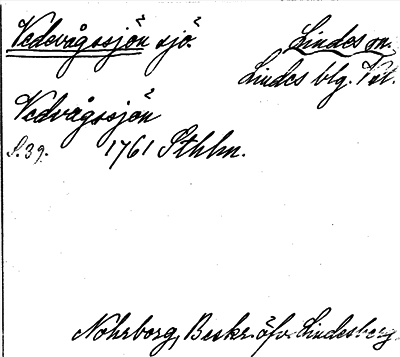 Vedevågssjön sjö. Lindes sn.
Lindes blg. Vst.
Vedvågssjön
S. 39. 1761 Sthlm.
Nohrborg, Beskr. öfv. Lindesberg.